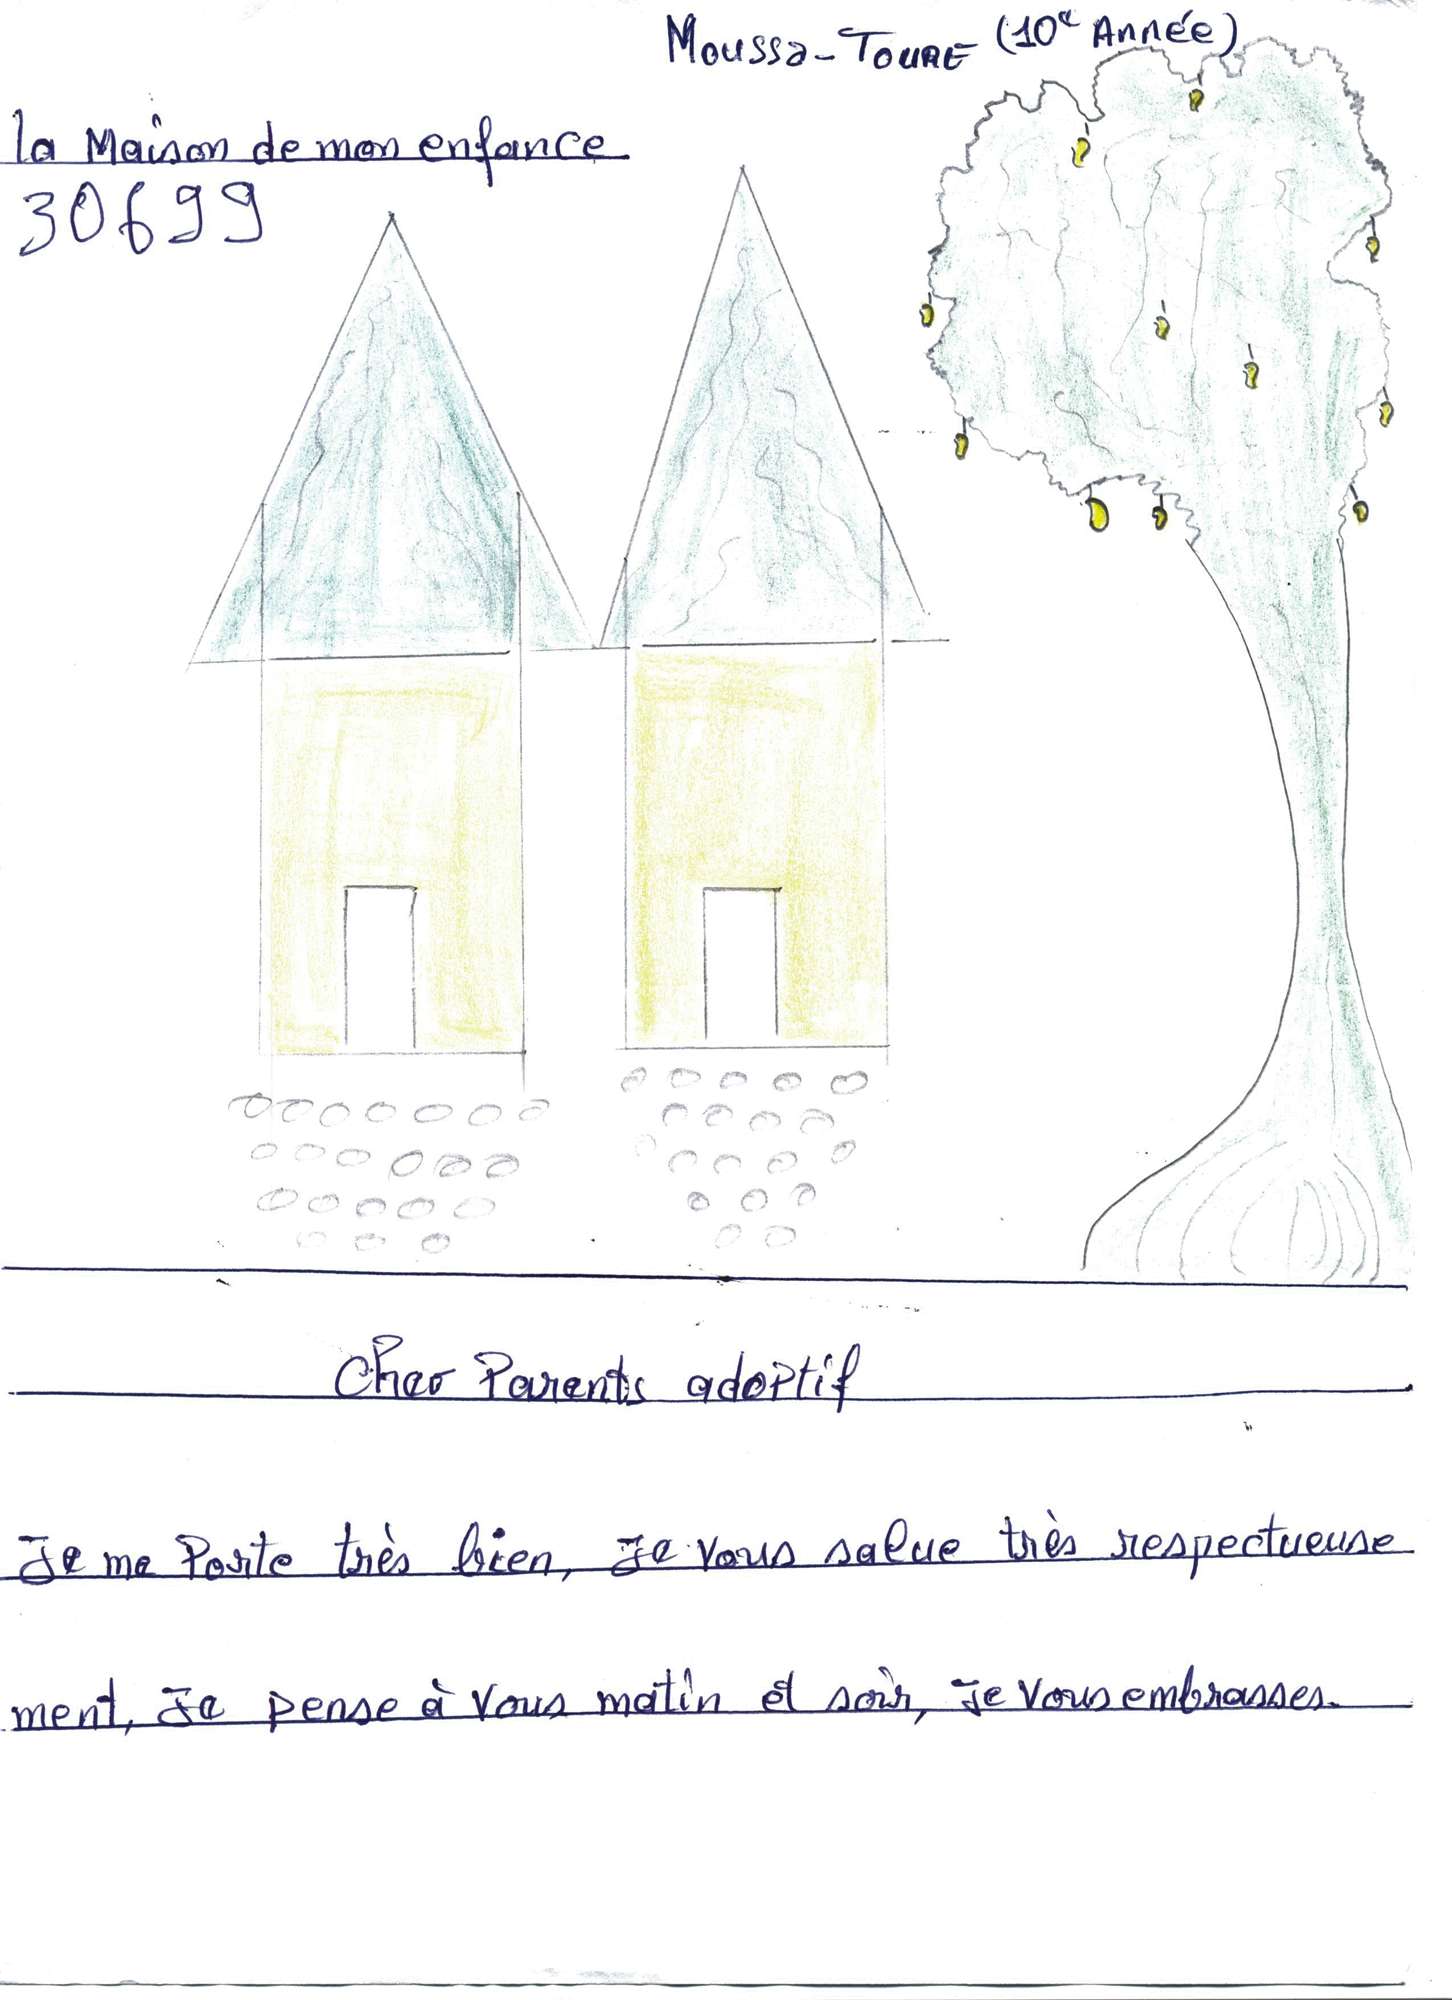 Moussa-TOURE (10e Année)
la Maison de mon enfance
30699
Cher Parents adoptif
Je me Porte très bien, Je vous salue très respectueuse
ment, Je pense à vous matin et soir, Je vous embrasses.